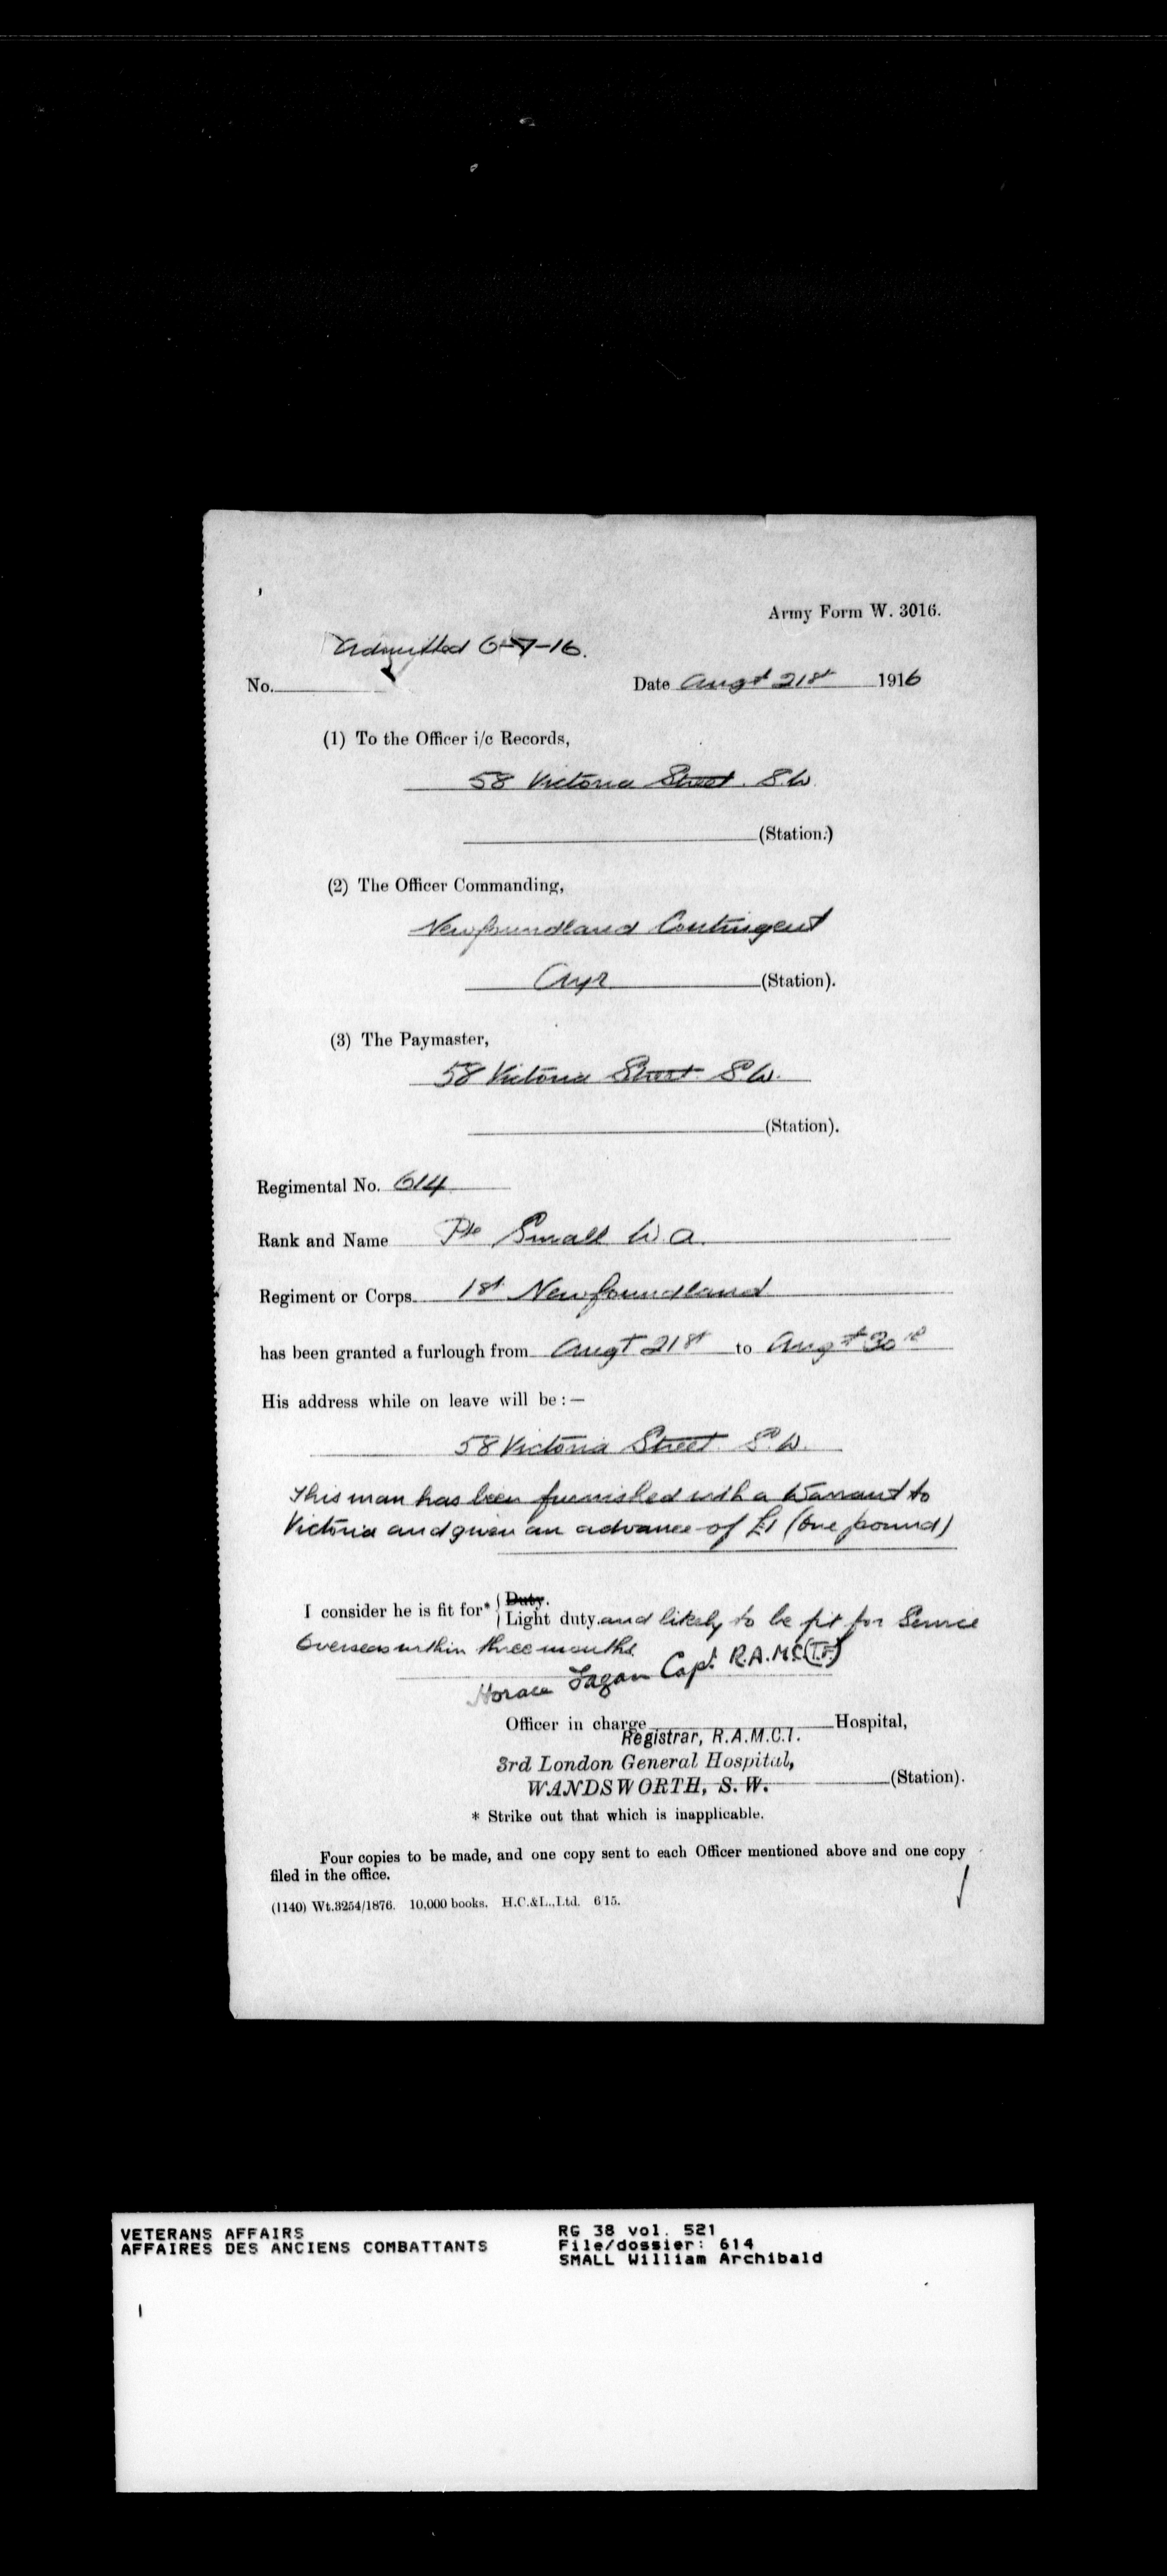 Army Form W. 3016.
Admitted 6-7-16.
No. Date Augt 21st 1916
(1) To the Officer i/c Records,
58 Victoria Street. S.W.
(Station.)
(2) The Officer Commanding,
Newfoundland Contingent
Ayr (Station).
(3) The Paymaster,
58 Victoria Street S.W.
(Station).
Regimental No. 614
Rank and Name Pte Small W.A.
Regiment or Corps. 1st Newfoundland
has been granted a furlough from Augt 21st to Augt 30th
His address while on leave will be :—
58 Victoria Street S.W.
This man has been furnished with a Warrant to
Victoria and given an advance of £1 (one pound)
I consider he is fit for* Duty.
Light duty. and likely to be fit for Service
Overseas within three months.
Horace Fagan Capt R.A.M.C(T.F.)
Officer in charge Hospital,
Registrar, R.A.M.C.T.
3rd London General Hospital,
WANDSWORTH, S.W. (Station).
* Strike out that which is inapplicable.
Four copies to be made, and one copy sent to each Officer mentioned above and one copy
filed in the office.
(1140) Wt.3254/1876. 10,000 books. H.C.&L.,Ltd. 6/15.
VETERANS AFFAIRS RG 38 vol. 521
AFFAIRES DES ANCIENS COMBATTANTS File/dossier: 614
SMALL William Archibald